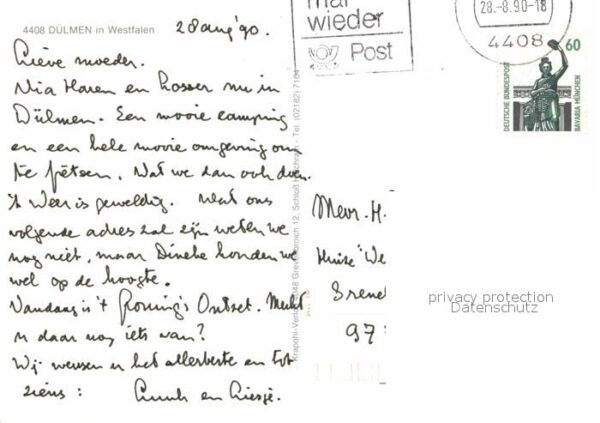 4408 DÜLMEN in Westfalen
28 aug '90.
Lieve moeder.
Via Haren en Losser nu in
Dülmen. Een mooie camping
en een hele mooie omgeving om
te fietsen. Wat we dan ook doen.
't Weer is geweldig. Wat ons
volgende adres zal zijn weten we
nog niet, maar Dineke houden we
wel op de hoogte.
Vandaag is 't Gronings Ontzet. Merkt
u daar nog iets van?
Wij wensen u het allerbeste en tot
ziens : en
mal
wieder
Post
28.-8.90-18
4408
60
DEUTSCHE BUNDESPOST
BAVARIA MÜNCHEN
Krapohl-Verlag 4048 Grevenbroich 12, Schloß Tel. (02182) 7104
Mevr. H.
Huize "We
97
privacy protection
Datenschutz